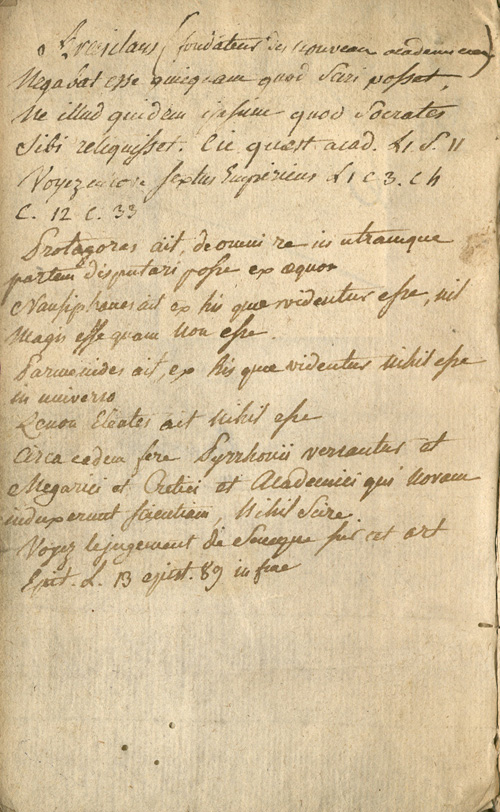 Arcésilaus (fondateur des nouveau academicien)
Negabat esse quicquam quod Sciri posset,
Ne illud quidem ipsum quod Socrates
Sibi reliquisset. Cic quæst acad. L1 S. 11
Voyez encore sextus Empiricus L1 C 3. C 4
C. 12 C. 33
Protagoras ait, de omni re in utramque
partem disputari posse ex æquo
Nausiphanes ait ex his quæ videntur esse, nil
Magis esse quam non esse
Parmenides ait, ex his quæ videntur nihil esse
in universo
Zenon Eleates ait nihil esse
Circa eadem fere Pyrrhonii versantur et
Megarici et Cretici et Academici qui novam
induxerunt scientiam, Nihil Scire
Voyez le jugement de Seneque sur cet art
Epit. L. 13 epist. 89 in fine